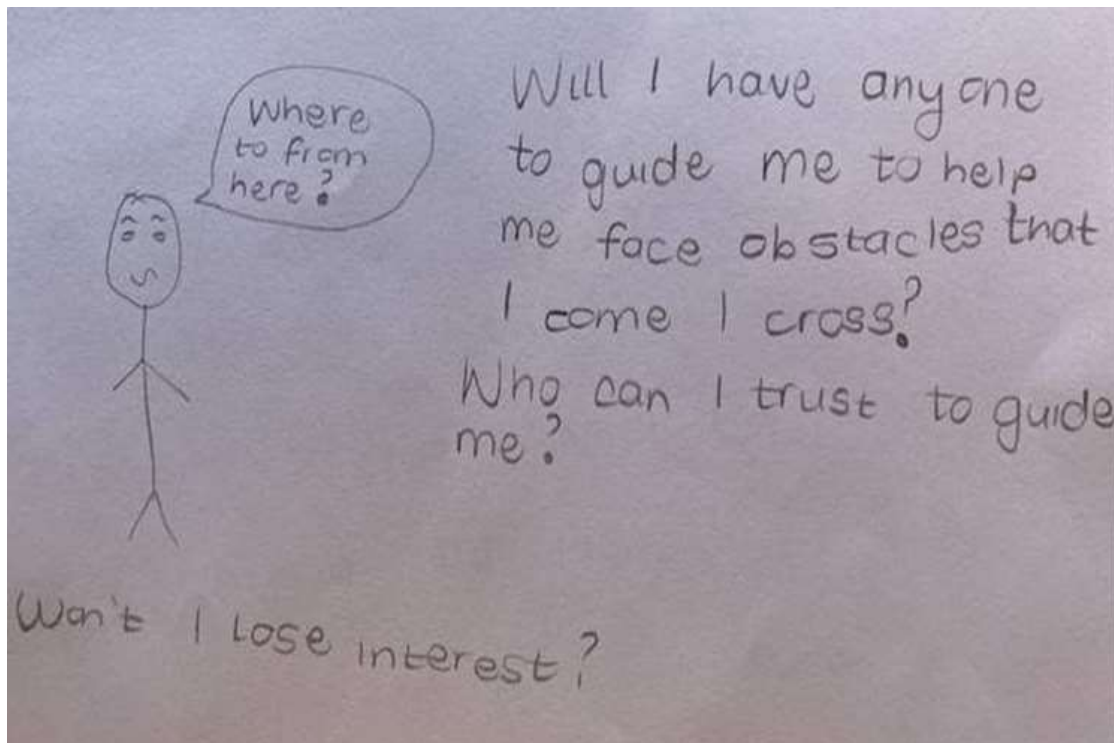 Where
to from
here?
Will I have anyone
to guide me to help
me face obstacles that
I come I cross?
Who can I trust to guide
me?
Won't I lose interest?